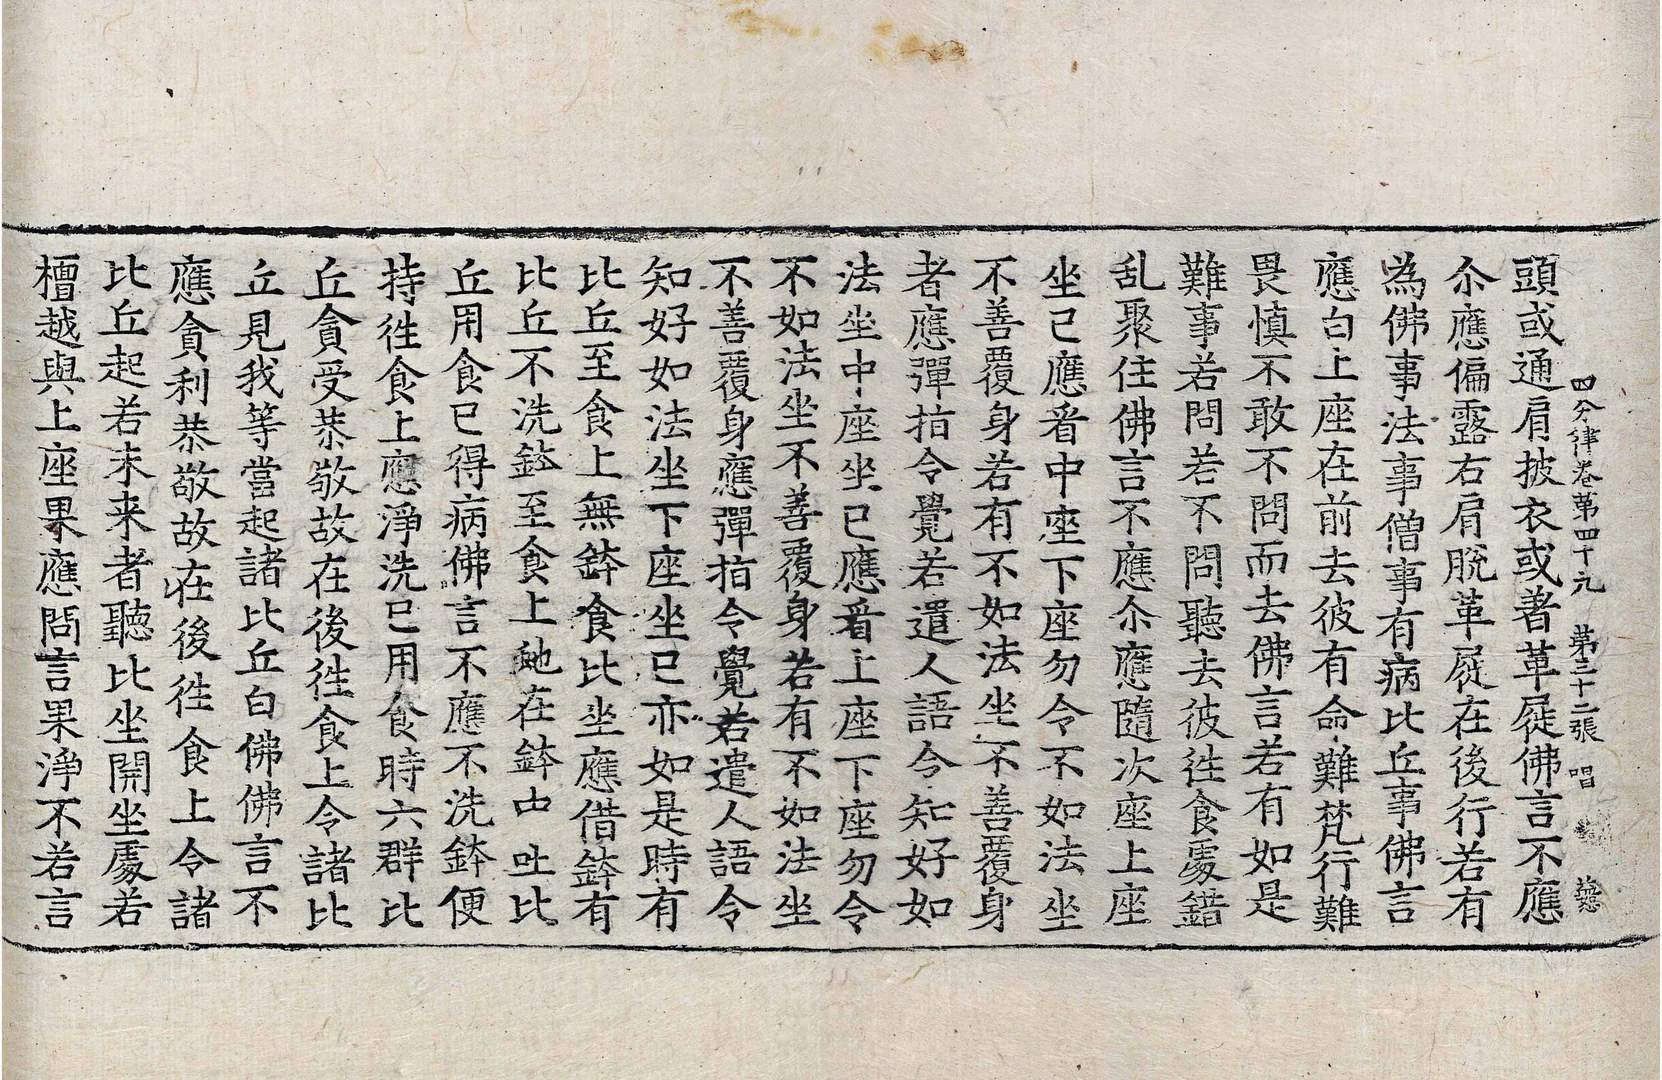 四分律卷第四十九 第三十二張 唱
頭或通肩披衣或著革屣佛言不應
尒應偏露右肩脫革屣在後行若有
為佛事法事僧事有病比丘事佛言
應白上座在前去彼有命難梵行難
畏慎不敢不問而去佛言若有如是
難事若問若不問聽去彼徃食處錯
乱聚住佛言不應尒應隨次座上座
坐已應看中座下座勿令不如法坐
不善覆身若有不如法坐不善覆身
者應彈指令覺若遣人語令知好如
法坐中座坐已應看上座下座勿令
不如法坐不善覆身若有不如法坐
不善覆身應彈指令覺若遣人語令
知好如法坐下座坐已亦如是時有
比丘至食上無鉢食比坐應借鉢有
比丘不洗鉢至食上虵在鉢中吐比
丘用食已得病佛言不應不洗鉢便
持徃食上應淨洗已用食時六群比
丘貪受恭敬故在後徃食上令諸比
丘見我等當起諸比丘白佛佛言不
應貪利恭敬故在後徃食上令諸
比丘起若未来者聽比坐開坐處若
檀越與上座果應問言果淨不若言